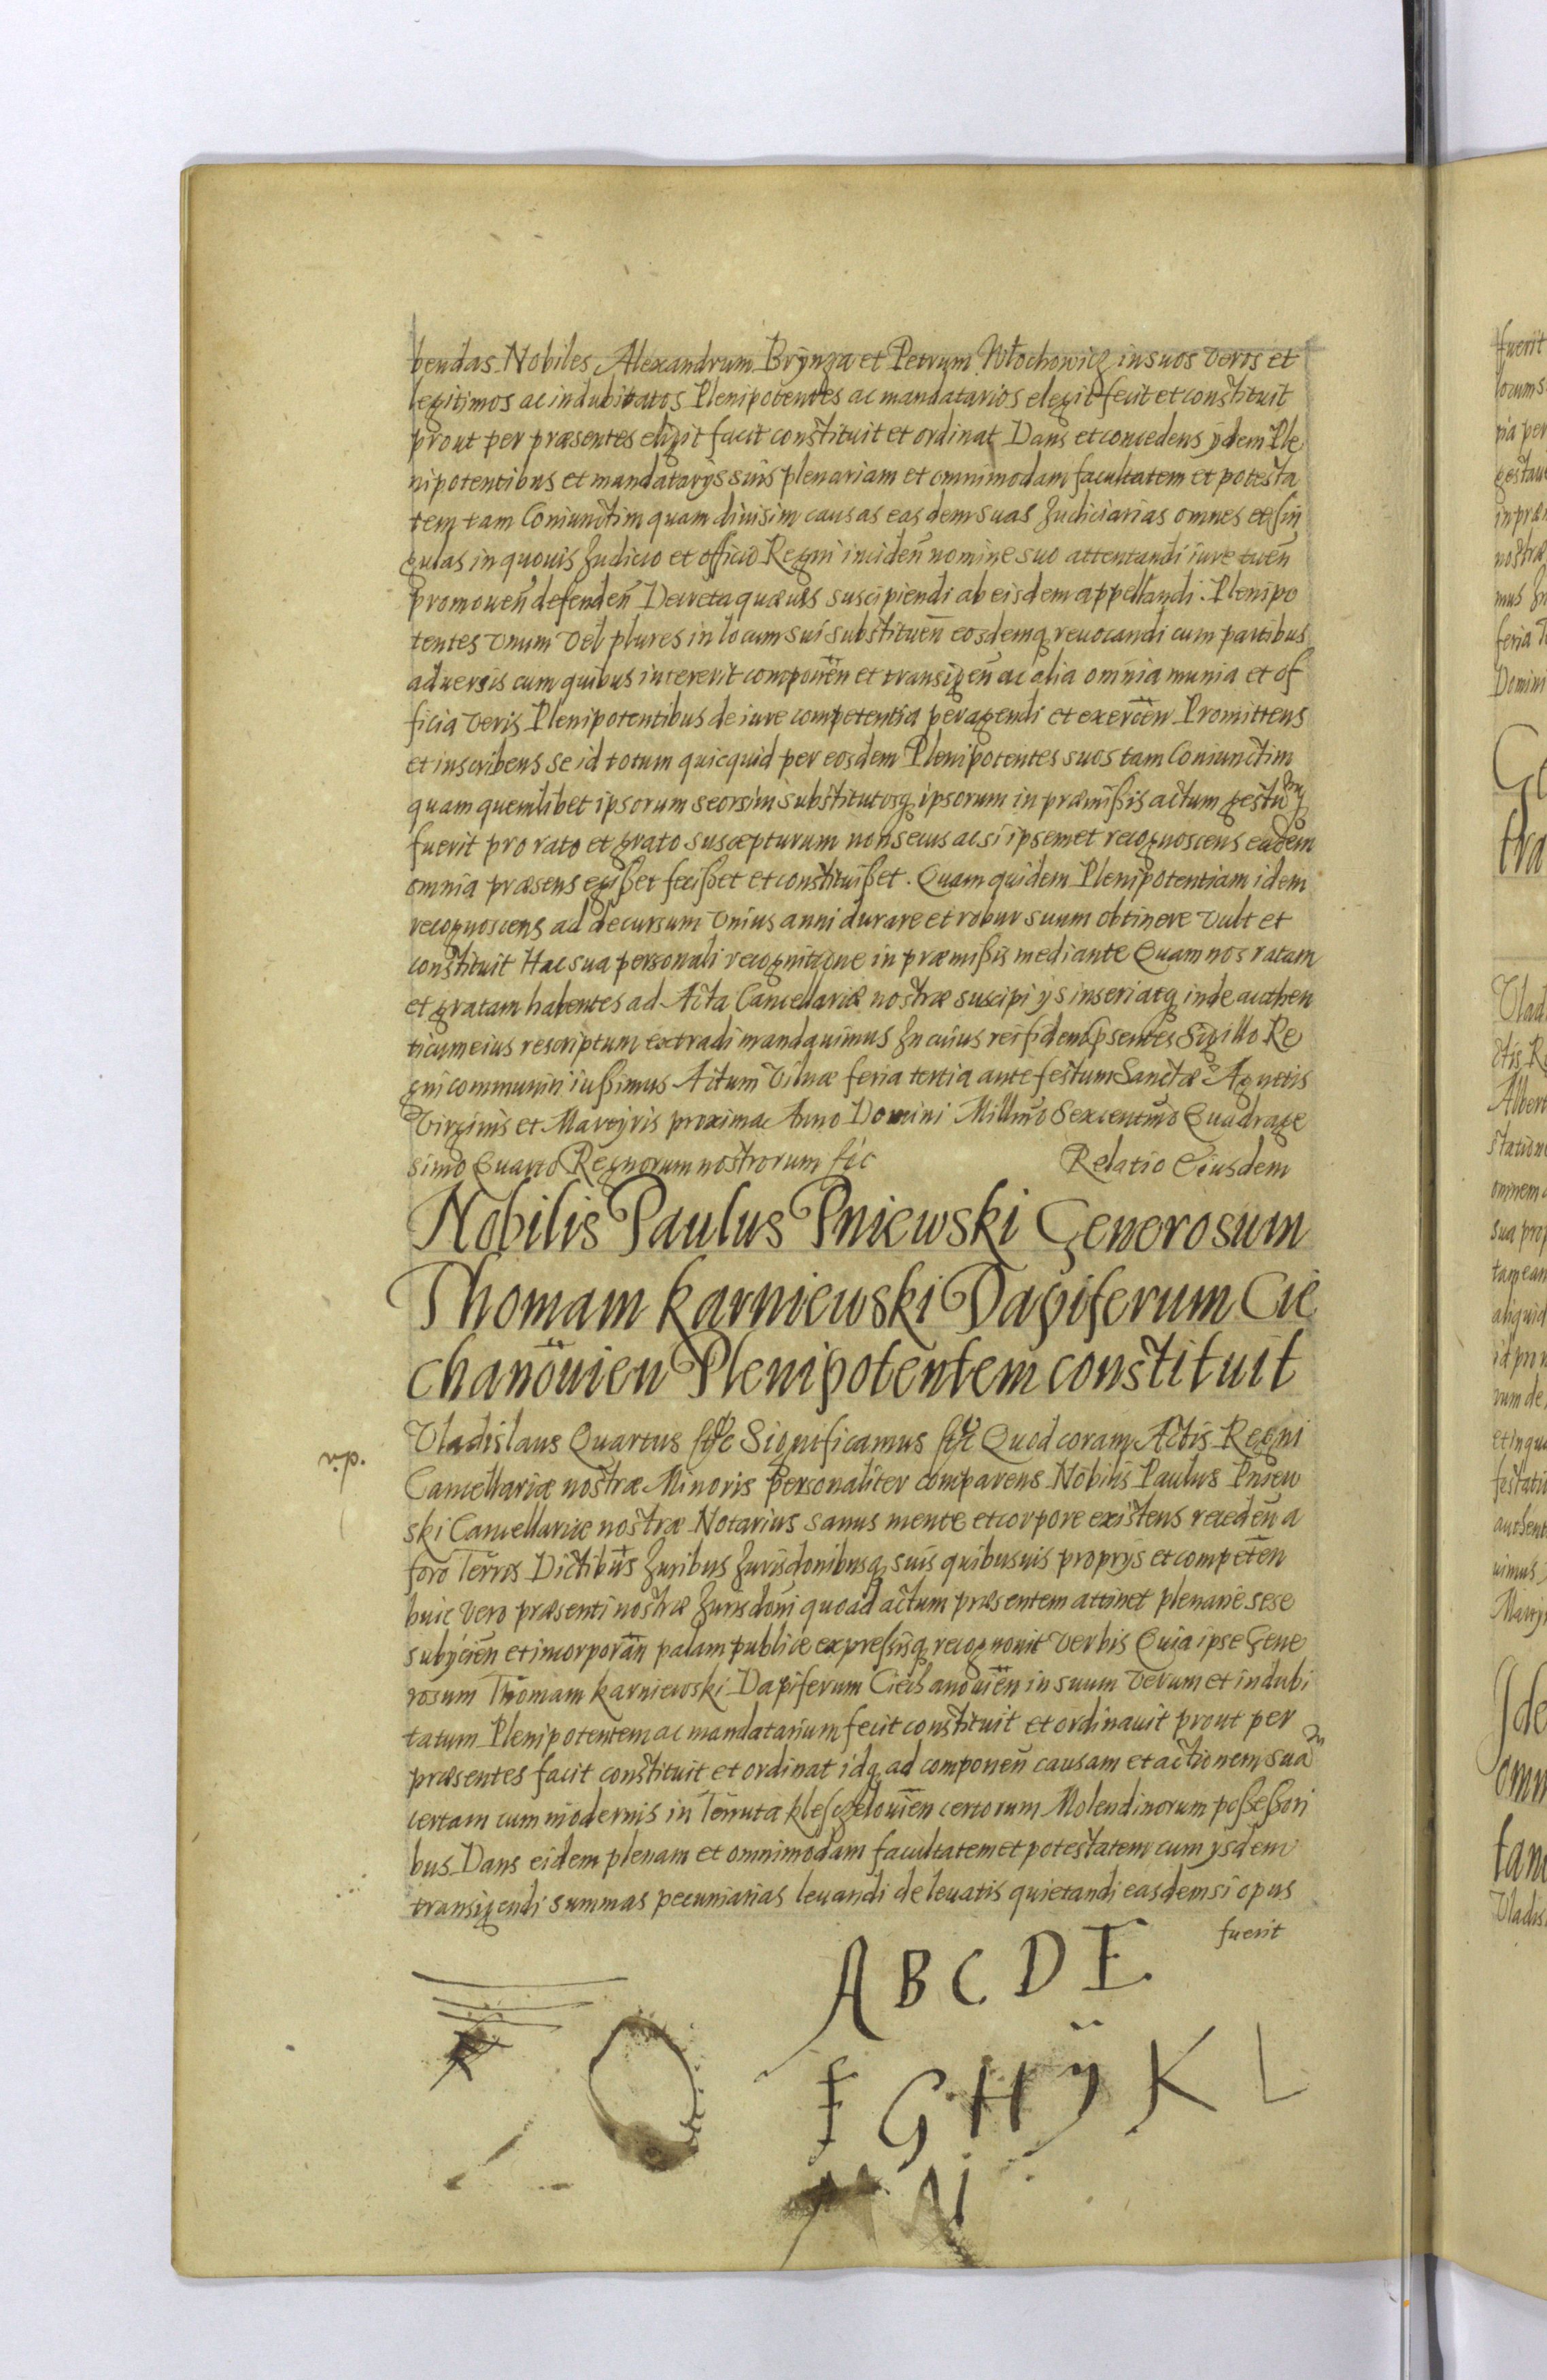 bendas Nobiles Alexandrum Brynza et Petrum Włochowicz in suos veros et
legitimos ac indubitatos Plenipotentes ac mandatarios elegit fecit et constituit
prout per præsentes eligit facit constituit et ordinat Dans et concedens ijdem Ple
nipotentibus et mandatarijs suis plenariam et omnimodam facultatem et potesta
tem tam Coniunctim quam diuisim causas easdem suas Judiciarias omnes et sin
gulas in quouis Judicio et officio Regni inciden̄ nomine suo attentandi iure tuen̄
promouen̄ defenden̄ Decreta quæuis suscipiendi ab eisdem appellandi Plenipo
tentes vnum vel plures in locum sui substituen̄ eosdemq reuocandi cum partibus
aduersis cum quibus intererit componen̄ et transigen̄ ac alia omnia munia et of
ficia veris Plenipotentibus de iure competentia peragendi et exercen̄ Promittens
et inscribens se id totum quicquid per eosdem Plenipotentes suos tam Coniunctim
quam quemlibet ipsorum seorsim substitutosq ipsorum in præmißis actum gestumq
fuerit pro rato et grato suscepturum non secus ac si ipsemet recognoscens eadem
omnia præsens egißet fecißet et constituißet. Quam quidem Plenipotentiam idem
recognoscens ad decursum vnius anni durare et robur suum obtinere vult et
constituit Hac sua personali recognitione in præmißis mediante Quam nos ratam
et gratam habentes ad Acta Cancellariæ nostræ suscipi ijs inseri atq inde authen
ticum eius rescriptum extradi mandauimus In cuius rei fidem pſentes Sigillo Re
gni communiri iußimus Actum Vilnæ feria tertia ante festum Sanctæ Agnetis
Virginis et Martyris proxima Anno Domini Millmo Sexcentmo Quadrage
simo Quarto Regnorum nostrorum etc Relatio Eiusdem
Nobilis Paulus Pniewski Generosum
Thomam Karniewski Dapiferum Cie
chanouien Plenipotentem constituit
Vladislaus Quartus etc Significamus etc Quod coram Actis Regni
Cancellariæ nostræ Minoris personaliter comparens Nobilis Paulus Pniew
ski Cancellariæ nostræ Notarius sanus mente et corpore existens receden̄ a
foro Terris Dictibus Juribus Jurisdonibusq suis quibusuis proprijs et competen̄
huic vero præsenti nostræ Jurisdoni quoad actum præsentem attinet plenarie sese
subijcien̄ et incorporan̄ palam publice expreßisq recognouit verbis Quia ipse Gene
rosum Thomam Karniewski Dapiferum Ciechanouien̄ in suum verum et indubi
tatum Plenipotentem ac mandatarium fecit constituit et ordinauit prout per
præsentes facit constituit et ordinat idq ad componen̄ causam et actionem suam
certam cum modernis in Tenuta Kleszczelouien̄ certorum Molendinorum poßeßori
bus Dans eidem plenam et omnimodam facultatem et potestatem cum ijsdem
transigendi summas pecuniarias leuandi de leuatis quietandi easdem si opus
fuerit
A B C D E
F G H ÿ K L
M N